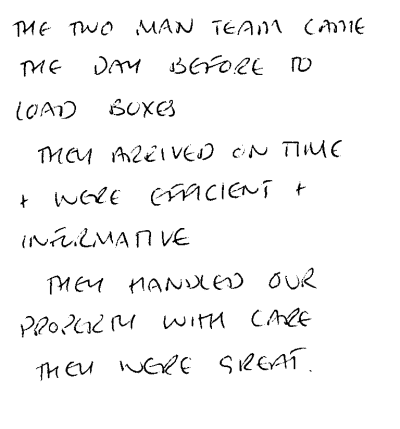 THE TWO MAN TEAM CAME
THE DAY BEFORE TO
LOAD BOXES
THEY ARRIVED ON TIME
+ WERE EFFICIENT +
INFORMATIVE
THEY HANDLED OUR
PROPERTY WITH CARE
THEY WERE GREAT.